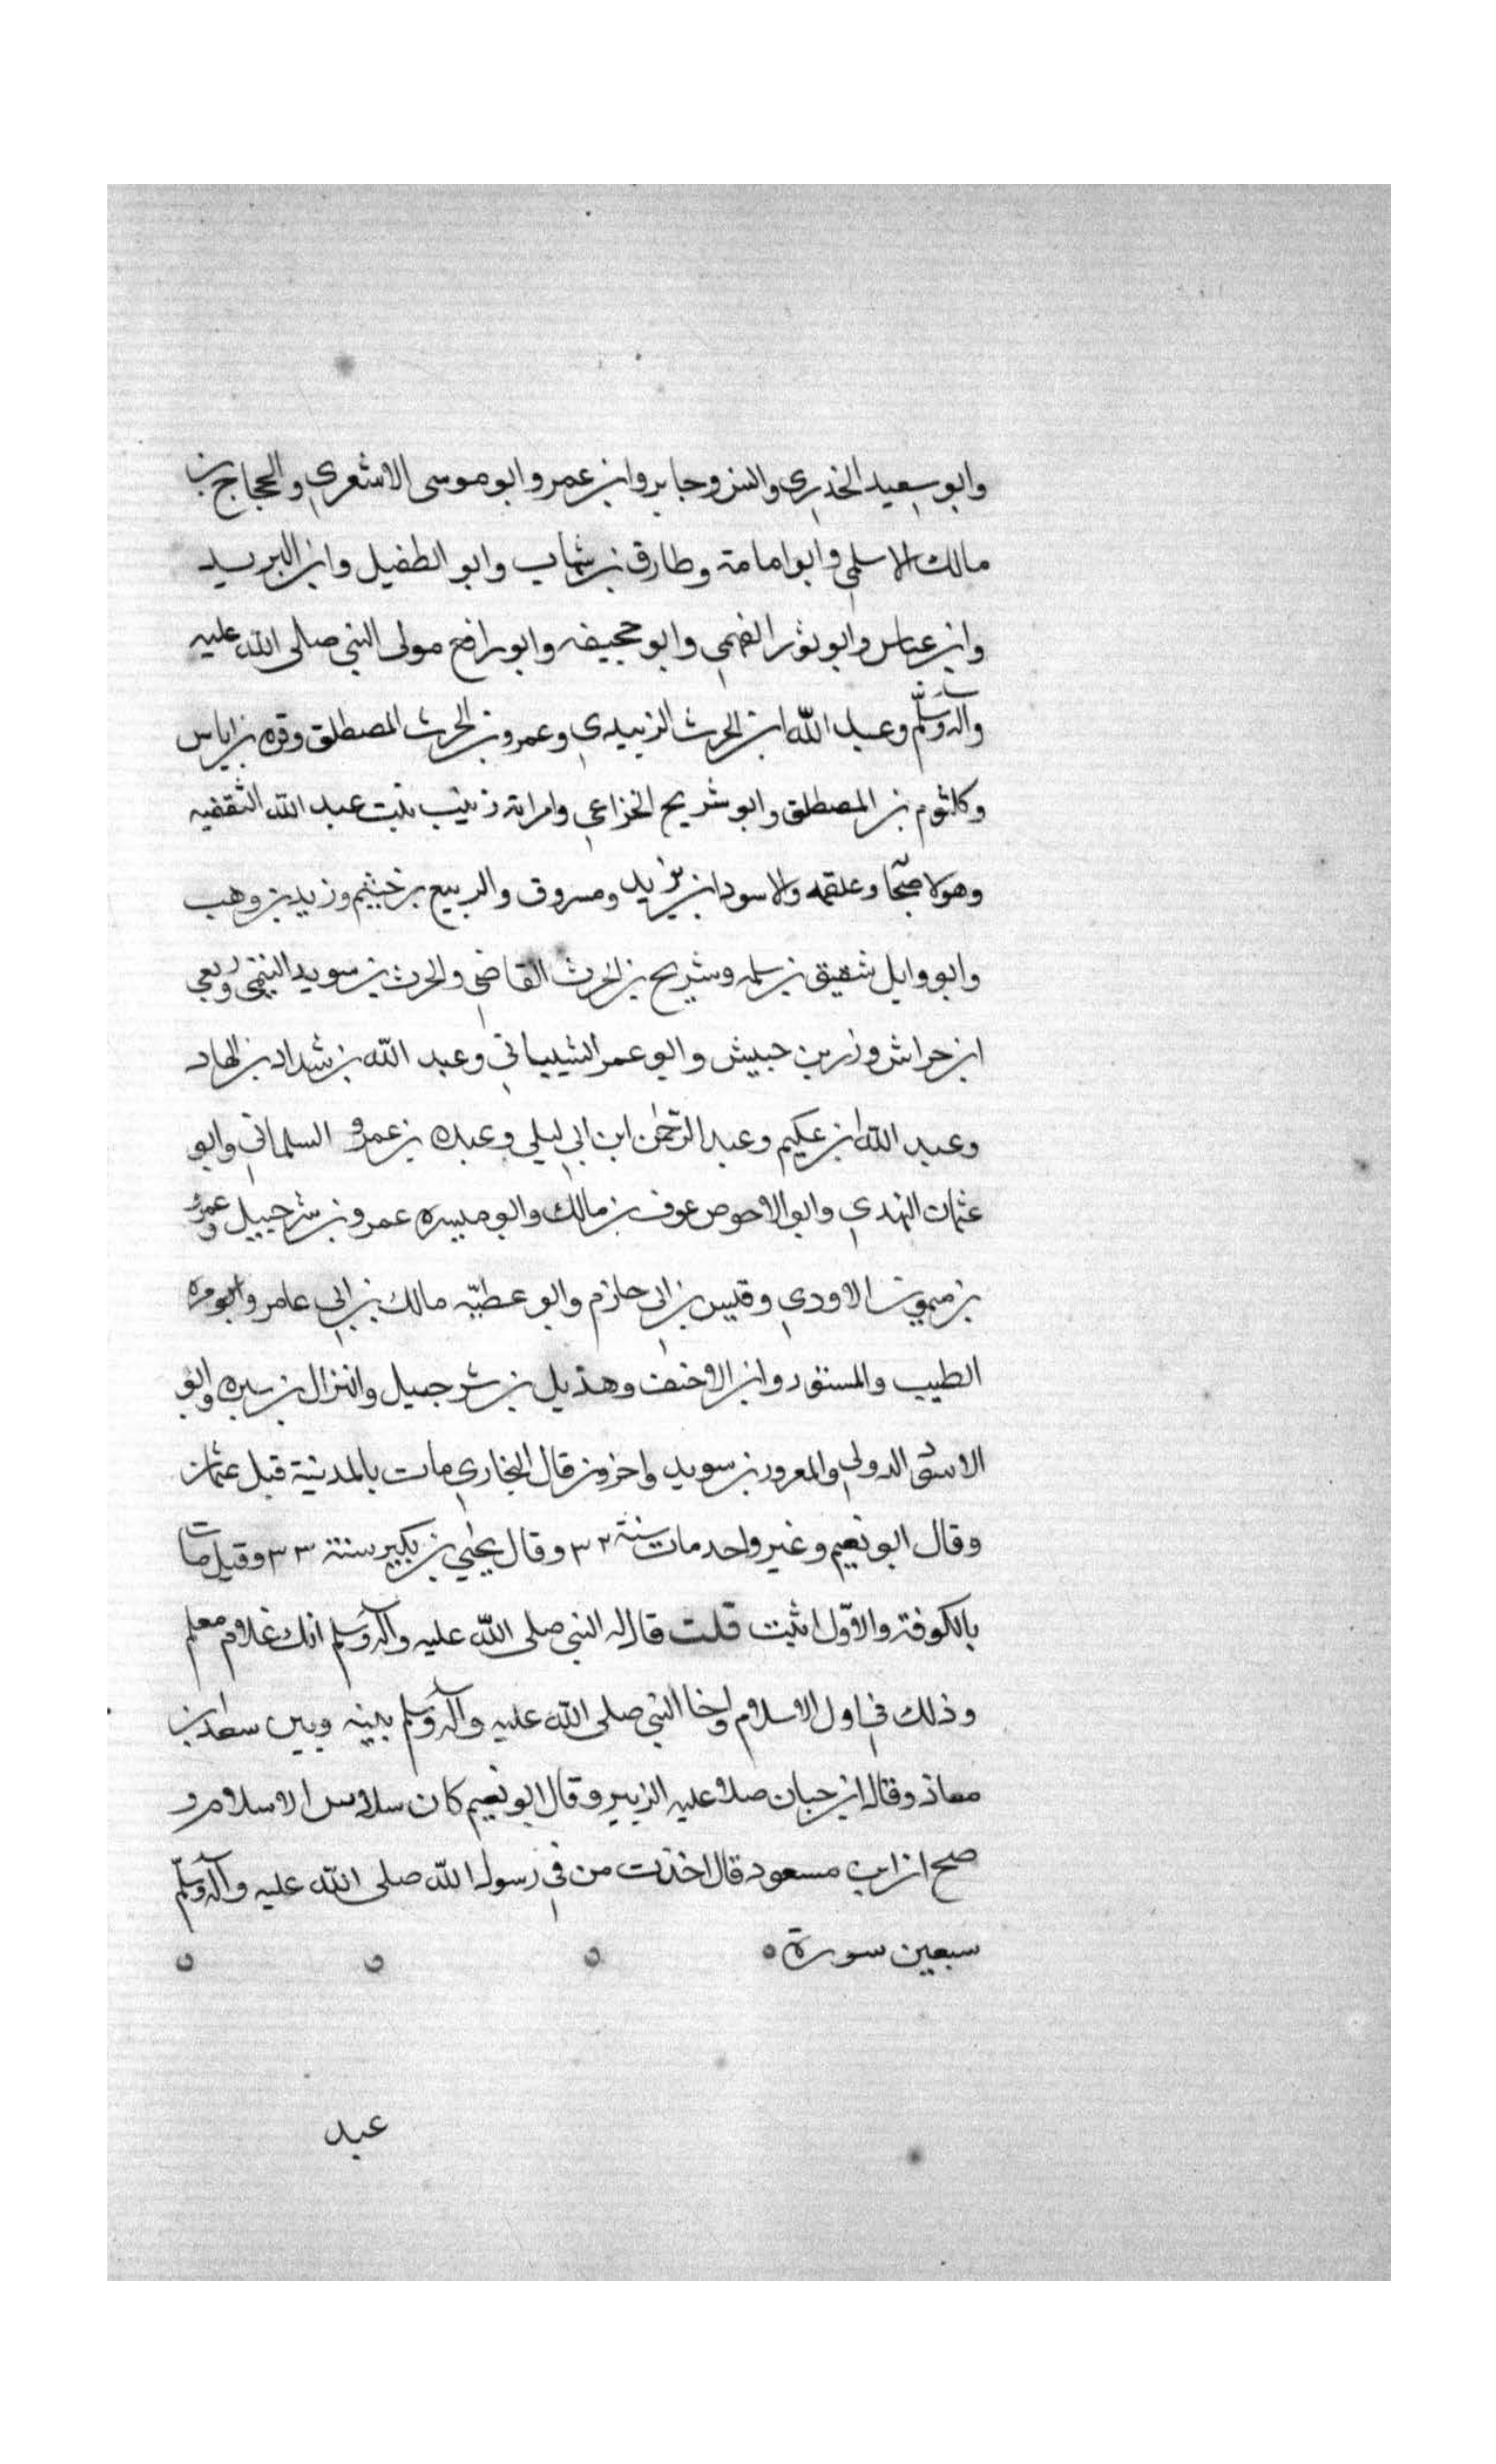 وابو سعيد الخذري وانس وجابر وابن عمر وابو موسى الاشعري والحجاج بن
مالك الاسلمي وابو امامة وطارق بن شهاب وابو الطفيل وابن الزبير
وابن عباس وابو ثور الفهمي وابو جحيفه وابو رافع مولى النبي صلى الله عليه
وآله وسلم وعبد الله ابن الحرث الزبيدي وعمرو بن الحرث المصطلق وقره بن اياس
وكلثوم بن المصطلق وابو شريح الخزاعي وامراته زينب بنت عبد الله الثقفيه
وهولا صحا وعلقمه والاسود ابن يزيد ومسروق والربيع بن خيثم وزيد بن وهب
وابو وايل شقيق بن سلمه وشريح بن الحرث القاضي والحرث بن سويد التيمي وربعي
ابن حراش وزر بن حبيش وابو عمر الشيباني وعبد الله بن شداد بن الهاد
وعبد الله ابن عكيم وعبد الرحمن ابن ابي ليلى وعبده بن عمرو السلماني وابو
عثمان النهدي وابو الاحوص عوف بن مالك وابو ميسره عمرو بن شرحبيل وعمرو
بن ميمون الاودي وقيس بن ابي حازم وابو عطيّه مالك بن ابي عامر وابو مره
الطيب والمستورد وابن الاحنف وهذيل بن شرحبيل والنزال بن سبره وابو
الاسود الدولي والمعرور بن سويد واخرون قال البخاري مات بالمدينة قبل عثمان
وقال ابو نعيم وغير واحد مات سنة ٣٢ وقال يحيي بن بكير سنة ٣٣ وقيل مات
بالكوفة والاوّل اثبت قلت قال له النبي صلى الله عليه وآله وسلم انك غلام معلم
وذلك في اول الاسلام واخا النبي صلى الله عليه وآله وسلم بينه وبين سعد بن
معاذ وقال ابن حبان صلا عليه الزبير وقال ابو نعيم كان سادس الاسلام و
صح ان ابن مسعود قال اخذت من في رسول الله صلى الله عليه وآله وسلّم
سبعين سورة ٥ ٥ ٥ ٥
عبد